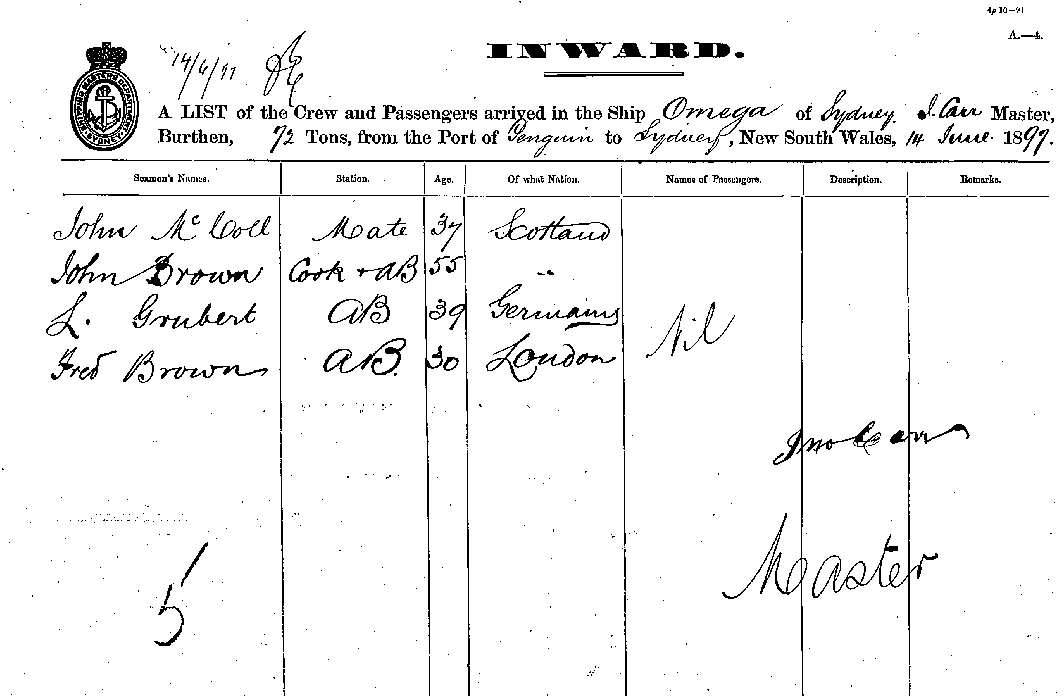 4p 10—91
A.—4.
INWARD.
14/6/97
A LIST of the Crew and Passengers arrived in the Ship Omega of Sydney J. Carr Master,
Burthen, 72 Tons, from the Port of Penguin to Sydney, New South Wales, 14 June 1897.
Seamen's Names. Station. Age. Of what Nation. Names of Passengers. Description. Remarks.
John McColl Mate 37 Scotland
John Brown Cook + AB 55 "
L. Grubert AB 39 Germany
Fred Brown AB. 30 London
Nil
Jno Carr
Master
5